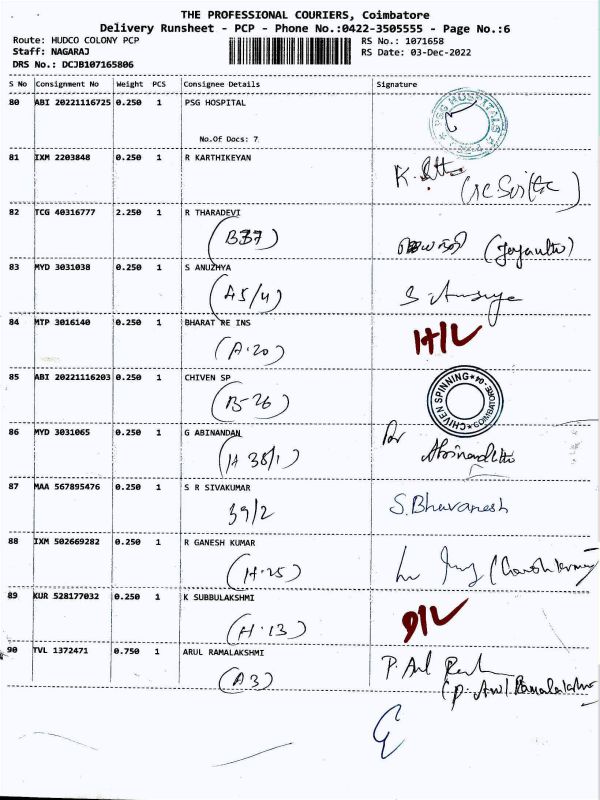 THE PROFESSIONAL COURIERS, Coimbatore
Delivery Runsheet - PCP - Phone No.:0422-3505555 - Page No.:6
Route: HUDCO COLONY PCP RS No.: 1071658
Staff: NAGARAJ RS Date: 03-Dec-2022
DRS No.: DCJB107165806
S No Consignment No Weight PCS Consignee Details Signature
80 ABI 20221116725 0.250 1 PSG HOSPITAL
PSG HOSPITALS
No.Of Docs: 7
81 IXM 2203848 0.250 1 R KARTHIKEYAN
K.
82 TCG 40316777 2.250 1 R THARADEVI
83 MYD 3031038 0.250 1 S ANUZHYA
(A5/4)
84 MTP 3016140 0.250 1 BHARAT RE INS
(A-20) H/L
85 ABI 20221116203 0.250 1 CHIVEN SP
(B-26) CHIVEN SPINNING COIMBATORE-04
86 MYD 3031065 0.250 1 G ABINANDAN
(H 38/1)
87 MAA 567895476 0.250 1 S R SIVAKUMAR
39/2 S.Bhuvanesh
88 IXM 502669282 0.250 1 R GANESH KUMAR
(H-25)
89 KUR 528177032 0.250 1 K SUBBULAKSHMI
(H-13) D/L
90 TVL 1372471 0.750 1 ARUL RAMALAKSHMI
(A3) P. Arul
(P. Arul Ramalakshmi